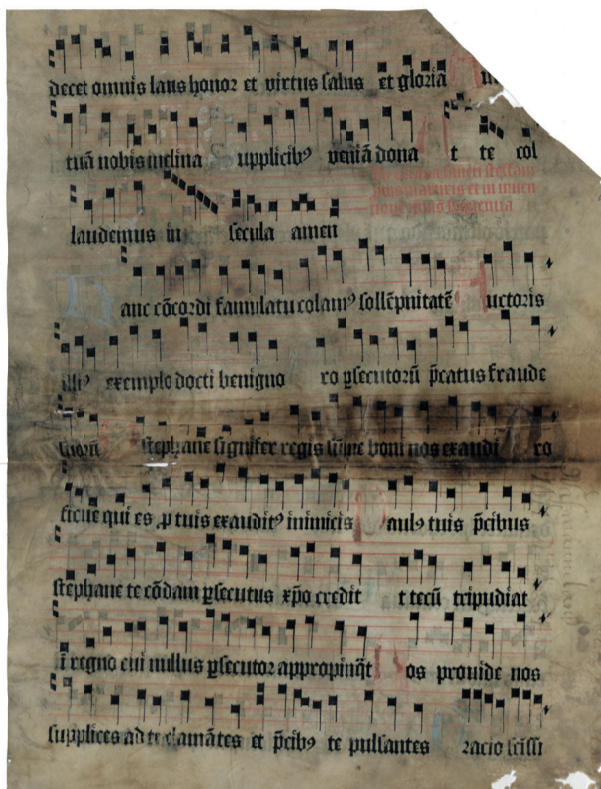 decet omnis laus honor et virtus salus et gloria
tuā nobis inclina Supplicibꝰ veniā dona t te col
In octava sancti stephani
laudemus in secula amen
anc cōcordi famulatu colamꝰ sollēpnitatē Auctoris
illiꝰ exemplo docti benigno ro ꝑsecutorū p̄catus fraude
suorū stephane signifer regis sūme boni nos exaudi ro
ficue qui es ꝓ tuis exauditꝰ inimicis Paulꝰ tuis p̄cibus
stephane te cōdam ꝑsecutus xp̄o credit t tecū tripudiat
ī regno cui nullus ꝑsecutor appropinq̄t Nos proinde nos
supplices ad te clamātes et p̄cibꝰ te pulsantes Oracio scissi